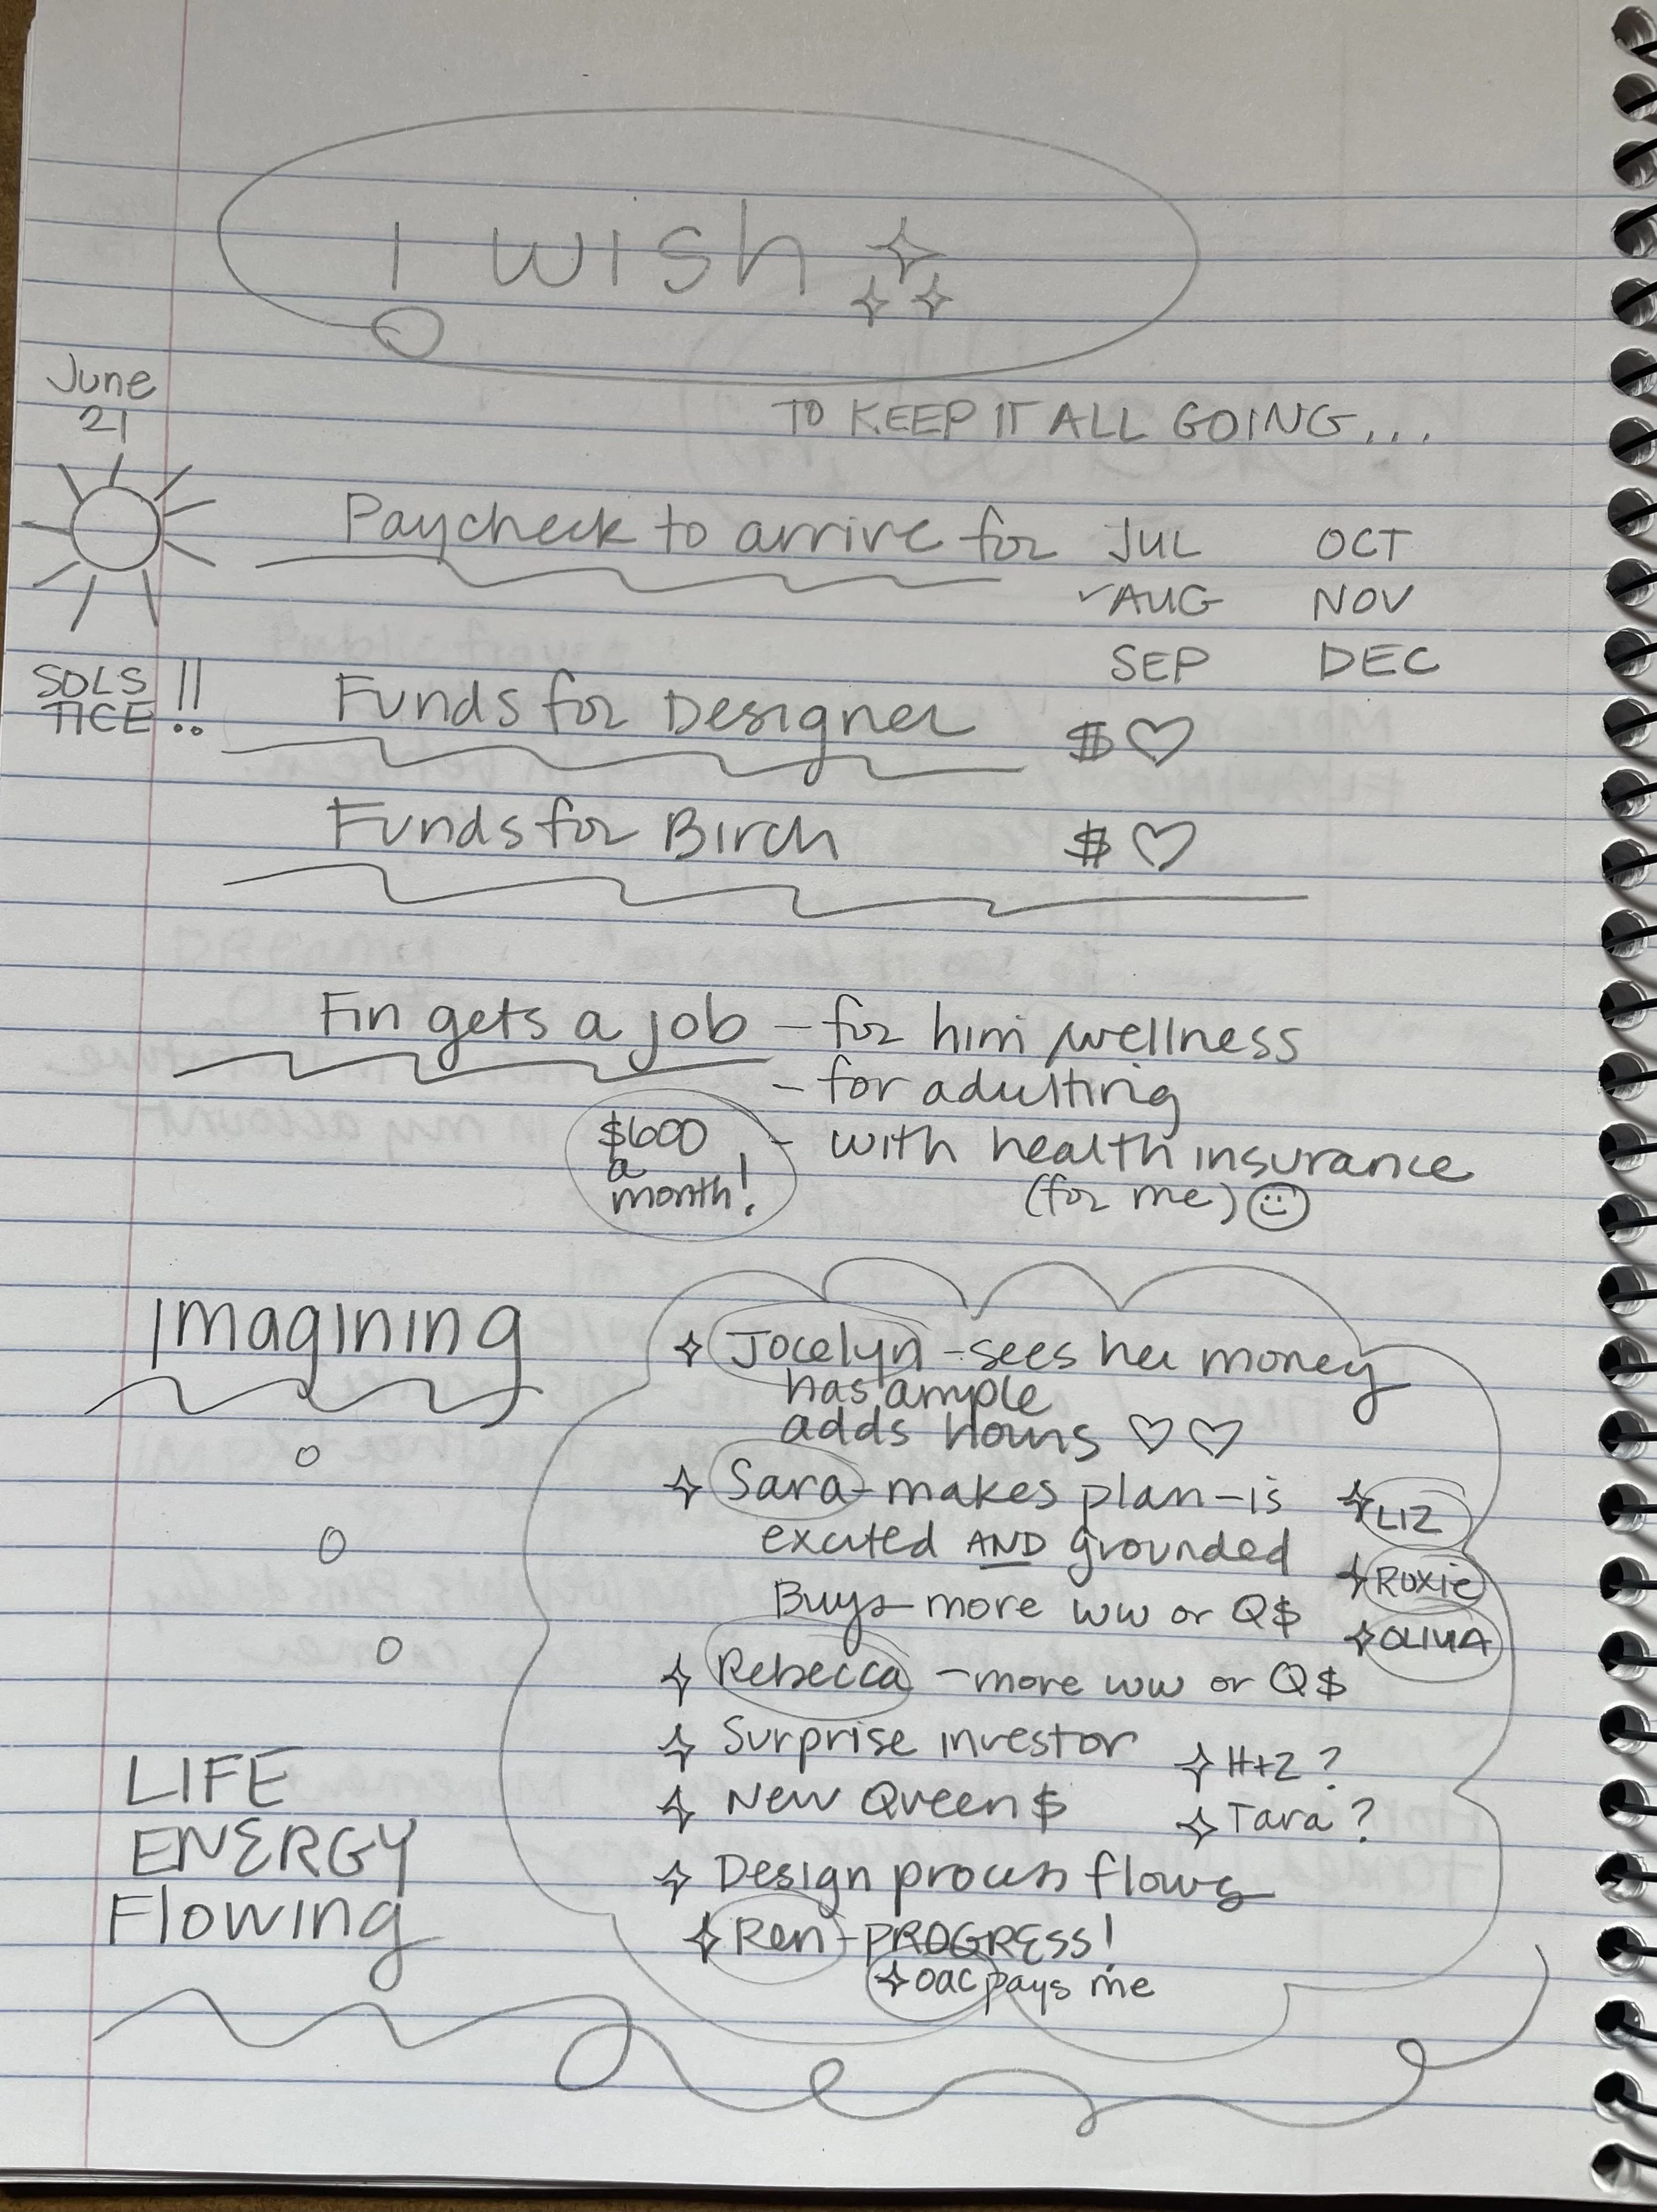 I WISH
June
21
TO KEEP IT ALL GOING...
Paycheck to arrive for
JUL OCT
✓AUG NOV
SEP DEC
SOLS
TICE !!
Funds for Designer $♡
Funds for Birch $♡
Fin gets a job - for him wellness
- for adulting
$600
a
month!
- with health insurance
(for me) ☺
Imagining
Jocelyn - sees her money
has ample
adds hours ♡♡
Sara - makes plan - is
excited AND grounded
Buys more WW or Q$
LIZ
ROXIE
OLIVIA
Rebecca - more WW or Q$
Surprise investor
H+Z?
New Queen $
Tara?
Design process flows
Ren - PROGRESS!
OAC pays me
LIFE
ENERGY
Flowing